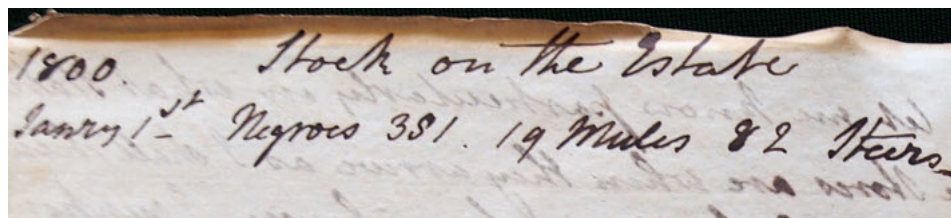 1800. Stock on the Estate
Janry 1st Negroes 381. 19 Mules 82 Steers